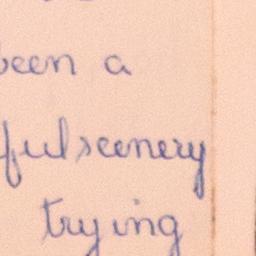 been a
ful scenery
trying